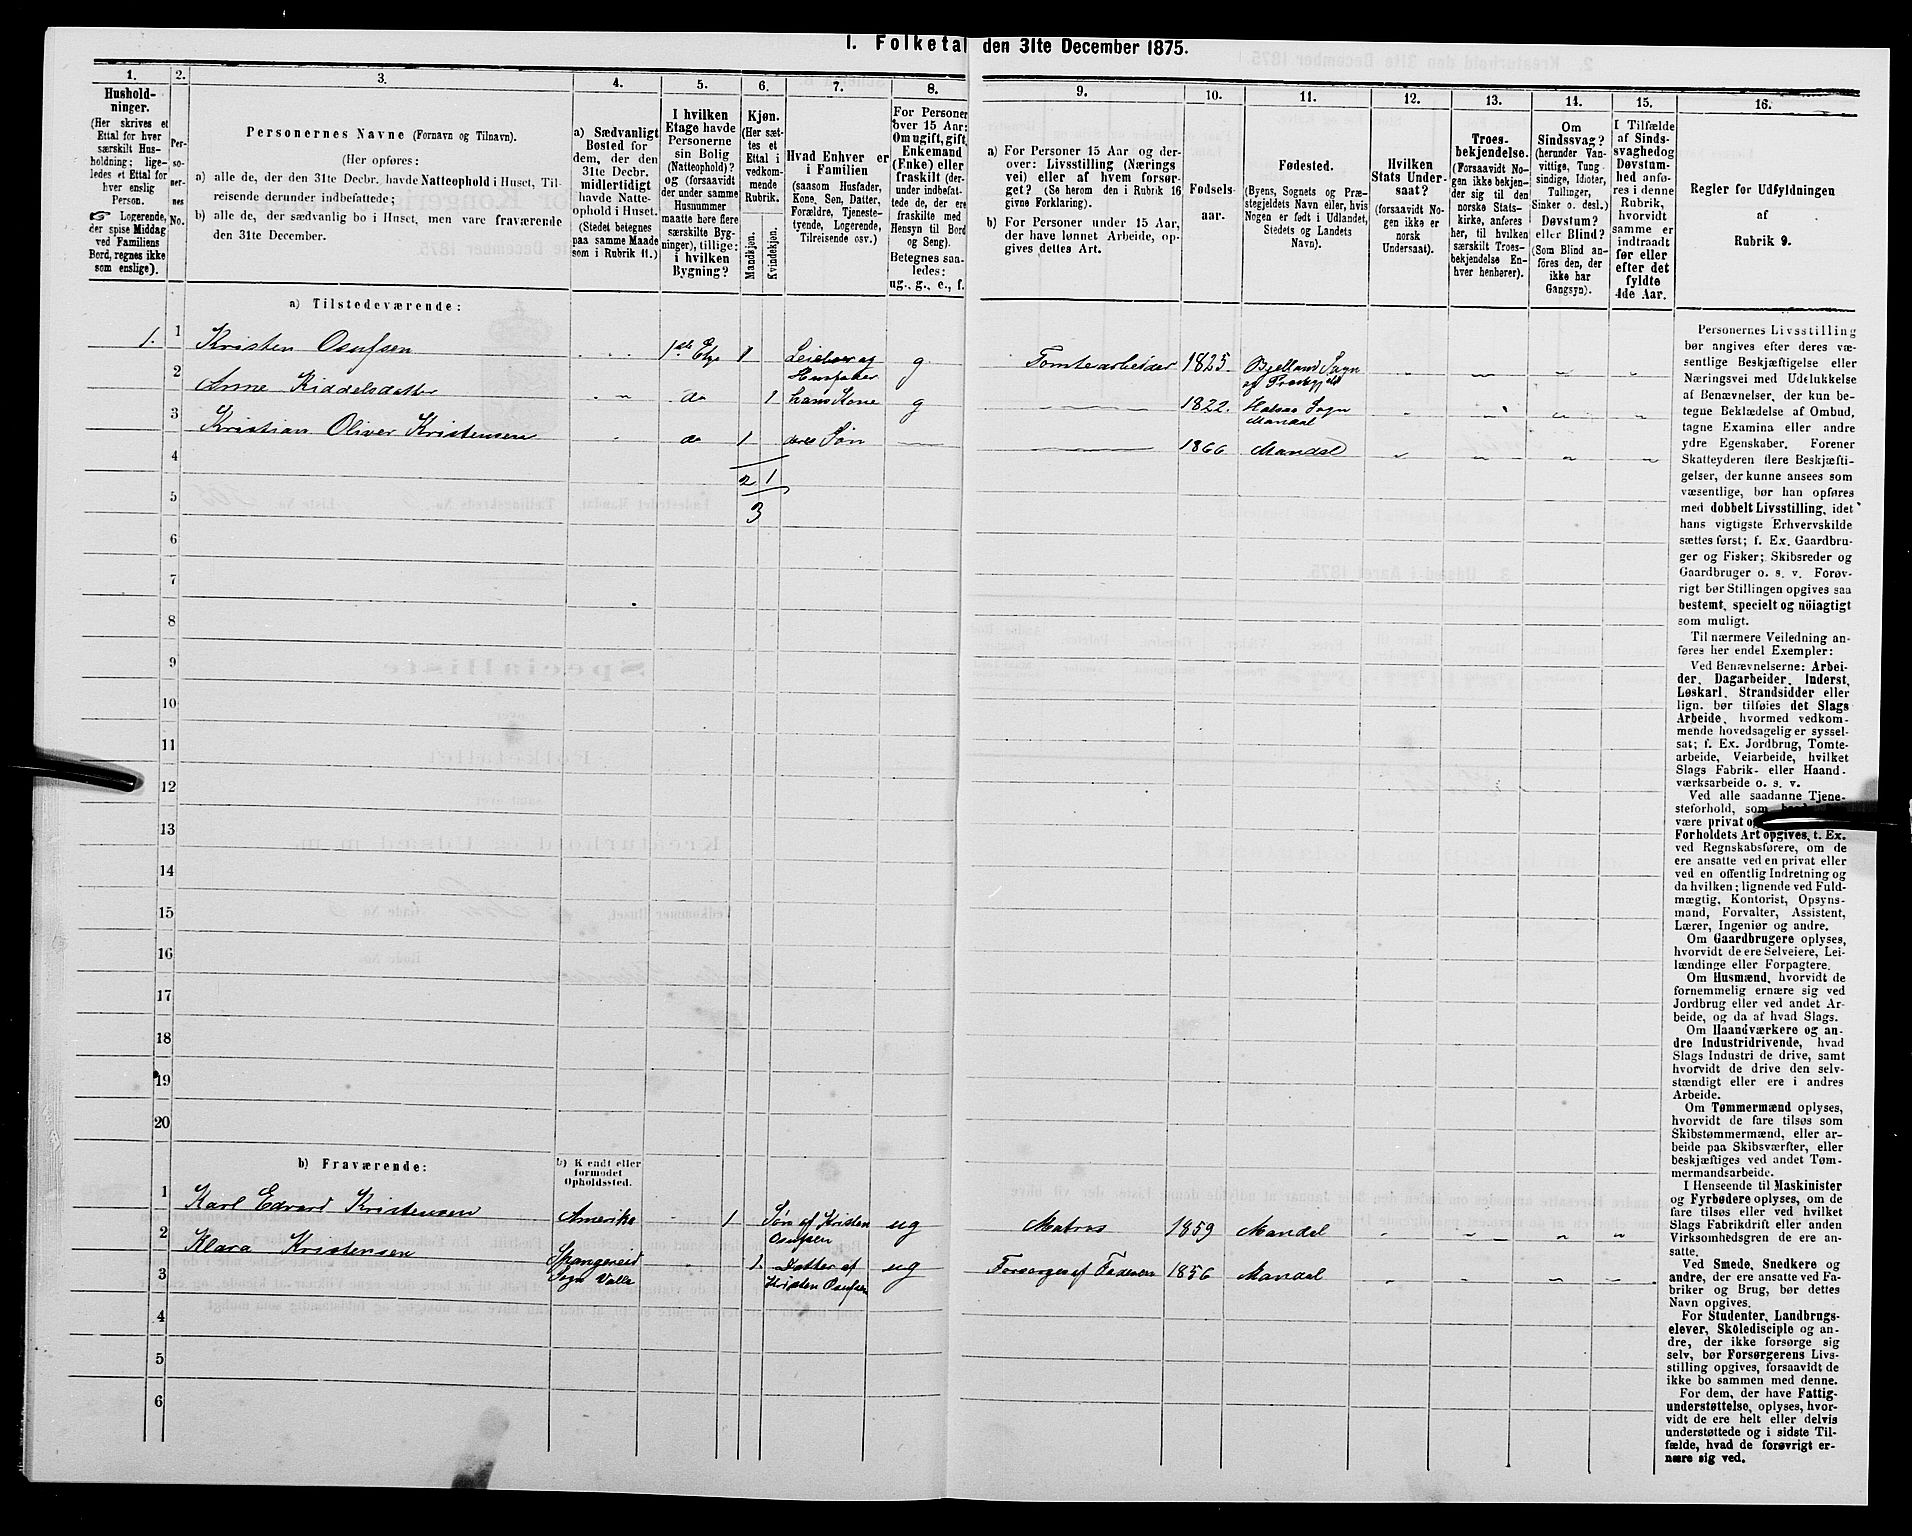 I. Folketal den 31te December 1875.
1.
2.
3.
4.
5.
6.
7.
8.
9.
10.
11.
12.
13.
14.
15.
16.
Hushold-
ninger.
(Her skrives et
Ettal for hver
særskilt Hus-
holdning; lige-
ledes et Ettal for
hver enslig
Person.
☞ Logerende,
der spise Middag
ved Familiens
Bord, regnes ikke
som enslige).
Per-
so-
ner-
nes
No.
Personernes Navne (Fornavn og Tilnavn).
(Her opføres:
a) alle de, der den 31te Decbr. havde Natteophold i Huset, Til-
reisende derunder indbefattede;
b) alle de, der sædvanlig bo i Huset, men vare fraværende
den 31te December.
a) Sædvanligt
Bosted for
dem, der den
31te Decbr.
midlertidigt
havde Natte-
ophold i Huset.
(Stedet betegnes
paa samme Maade
som i Rubrik 11.)
I hvilken
Etage havde
Personerne
sin Bolig
(Natteophold)?
og (forsaavidt
der under samme
Husnummer
maatte høre flere
særskilte Byg-
ninger), tillige:
i hvilken
Bygning?
Kjøn.
(Her sæt-
tes et
Ettal i
vedkom-
mende
Rubrik.
Mandkjøn.
Kvindekjøn.
Hvad Enhver er
i Familien
(saasom Husfader,
Kone, Søn, Datter,
Forældre, Tjeneste-
tyende, Logerende,
Tilreisende osv.)
For Personer
over 15 Aar:
Om ugift, gift,
Enkemand
(Enke) eller
fraskilt (der-
under indbefat-
tede de, der ere
fraskilte med
Hensyn til Bord
og Seng).
Betegnes saa-
ledes:
ug., g., e., f.
a) For Personer 15 Aar og der-
over: Livsstilling (Nærings-
vei) eller af hvem forsør-
get? (Se herom den i Rubrik 16
givne Forklaring).
b) For Personer under 15 Aar,
der have lønnet Arbeide, op-
gives dettes Art.
Fødsels-
aar.
Fødested.
(Byens, Sognets og Præ-
stegjeldets Navn eller, hvis
Nogen er født i Udlandet,
Stedets og Landets
Navn).
Hvilken
Stats Under-
saat?
(forsaavidt No-
gen ikke er
norsk
Undersaat).
Troes-
bekjendelse.
(Forsaavidt No-
gen ikke bekjen-
der sig til den
norske Stats-
kirke, anføres
her, til hvilken
særskilt Troes-
bekjendelse En-
hver henhører).
Om
Sindssvag?
(herunder Van-
vittige, Tung-
sindige, Idioter,
Tullinger,
Sinker o. desl.)
Døvstum?
eller Blind?
(Som Blind an-
føres den, der
ikke har
Gangsyn).
I Tilfælde
af Sinds-
svaghed og
Døvstum-
hed anfø-
res i denne
Rubrik,
hvorvidt
samme er
indtraadt
før eller
efter det
fyldte
4de Aar.
Regler for Udfyldningen
af
Rubrik 9.
a) Tilstedeværende:
1. 1 Kristen Osufsen 1ste Etge 1 Leieboer og Husfader g Tomtearbeider 1825 Bjelland Sogn og Præstgjeld
2 Anne Kiddelsdatter do 1 hans Kone g 1822. Halsaa Sogn Mandal
3 Kristian Oliver Kristensen do 1 deres Søn 1866 Mandal
4
2 1
5
3
6
7
8
9
10
11
12
13
14
15
16
17
18
19
20
b) Fraværende:
b) Kjendt eller
formodet
Opholdssted.
1 Karl Edvard Kristensen Amerika 1 Søn af Kristen Osufsen ug Matros 1859 Mandal
2 Klara Kristensen Spangereid Sogn Valle 1. Datter af Kristen Osufsen ug Forsørges af Faderen 1856 Mandal
3
4
5
6
Personernes Livsstilling
bør angives efter deres væ-
sentlige Beskjæftigelse eller
Næringsvei med Udelukkelse
af Benævnelser, der kun be-
tegne Beklædelse af Ombud,
tagne Examina eller andre
ydre Egenskaber. Forener
Skatteyderen flere Beskjæfti-
gelser, der kunne ansees som
væsentlige, bør han opføres
med dobbelt Livsstilling, idet
hans vigtigste Erhvervskilde
sættes først; f. Ex. Gaardbru-
ger og Fisker; Skibsreder og
Gaardbruger o. s. v. Forøv-
rigt bør Stillingen opgives saa
bestemt, specielt og nöiagtigt
som muligt.
Til nærmere Veiledning an-
føres her endel Exempler:
Ved Benævnelserne: Arbei-
der, Dagarbeider, Inderst,
Løskarl, Strandsidder eller
lign. bør tilføies det Slags
Arbeide, hvormed vedkom-
mende hovedsagelig er syssel-
sat; f. Ex. Jordbrug, Tomte-
arbeide, Veiarbeide, hvilket
Slags Fabrik- eller Haand-
værksarbeide o. s. v.
Ved alle saadanne Tjene-
steforhold, som
være privat
Forholdets Art opgives, t. Ex.
ved Regnskabsførere, om de
ere ansatte ved en privat eller
ved en offentlig Indretning og
da hvilken; lignende ved Fuld-
mægtig, Kontorist, Opsyns-
mand, Forvalter, Assistent,
Lærer, Ingeniør og andre.
Om Gaardbrugere oplyses,
hvorvidt de ere Selveiere, Lei-
lændinge eller Forpagtere.
Om Husmænd, hvorvidt de
fornemmelig ernære sig ved
Jordbrug eller ved andet Ar-
beide, og da af hvad Slags.
Om Haandværkere og an-
dre Industridrivende, hvad
Slags Industri de drive, samt
hvorvidt de drive den selv-
stændigt eller ere i andres
Arbeide.
Om Tømmermænd oplyses,
hvorvidt de fare tilsøs som
Skibstømmermænd, eller ar-
beide paa Skibsværfter, eller
beskjæftiges ved andet Tøm-
mermandsarbeide.
I Henseende til Maskinister
og Fyrbødere oplyses, om de
fare tilsøs eller ved hvilket
Slags Fabrikdrift eller anden
Virksomhedsgren de ere an-
satte.
Ved Smede, Snedkere og
andre, der ere ansatte ved Fa-
briker og Brug, bør dettes
Navn opgives.
For Studenter, Landbrugs-
elever, Skoledisciple og an-
dre, der ikke forsørge sig
selv, bør Forsørgerens Livs-
stilling opgives, forsaavidt de
ikke bo sammen med denne.
For dem, der have Fattig-
understøttelse, oplyses, hvor-
vidt de ere helt eller delvis
understøttede og i sidste Til-
fælde, hvad de forøvrigt er-
nære sig ved.